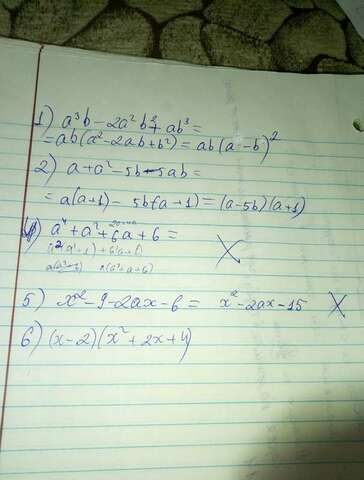 1) a³b - 2a²b² + ab³ =
= ab(a² - 2ab + b²) = ab(a - b)²
2) a + a² - 5b - 5ab =
= a(a+1) - 5b(a+1) = (a-5b)(a+1)
4) a⁴ + a² + 6a + 6 =
5) x² - 9 - 2ax - 6 = x² - 2ax - 15
6) (x-2)(x² + 2x + 4)